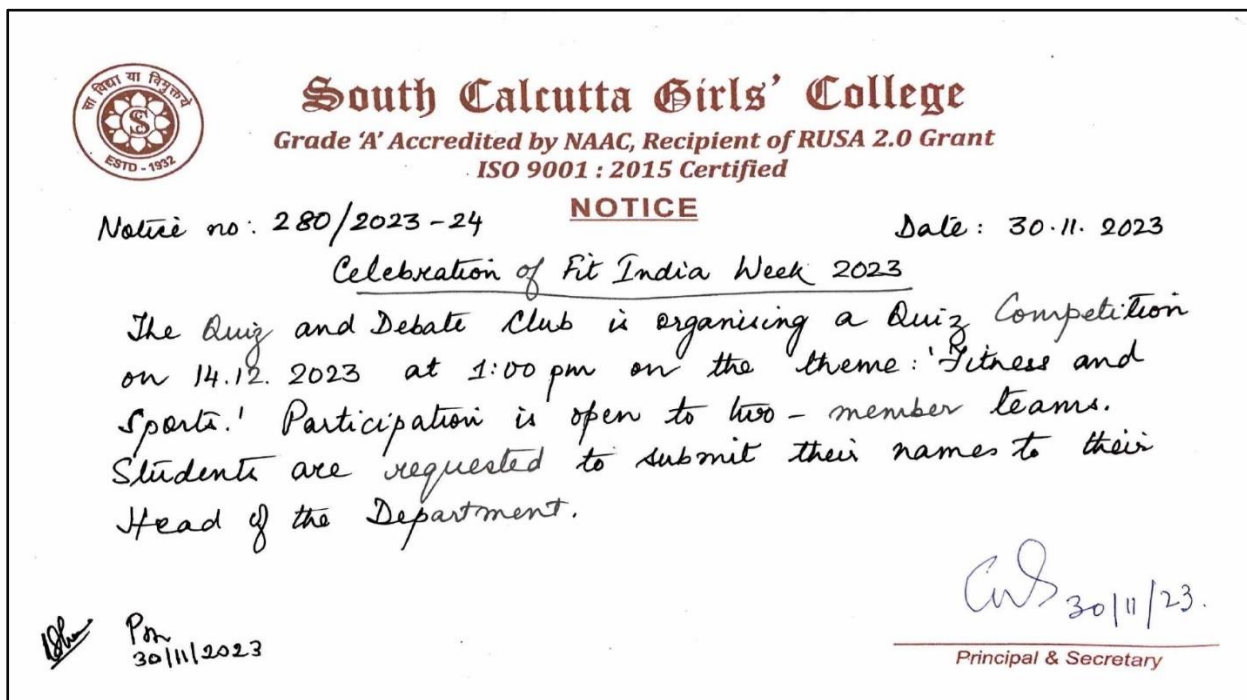 सा विद्या या विमुक्तये
ESTD - 1932
South Calcutta Girls' College
Grade 'A' Accredited by NAAC, Recipient of RUSA 2.0 Grant
ISO 9001 : 2015 Certified
NOTICE
Notice no: 280/2023-24 Date: 30.11.2023
Celebration of Fit India Week 2023
The Quiz and Debate Club is organising a Quiz Competition
on 14.12.2023 at 1:00 pm on the theme: 'Fitness and
Sports.' Participation is open to two-member teams.
Students are requested to submit their names to their
Head of the Department.
30/11/23.
30/11/2023
Principal & Secretary